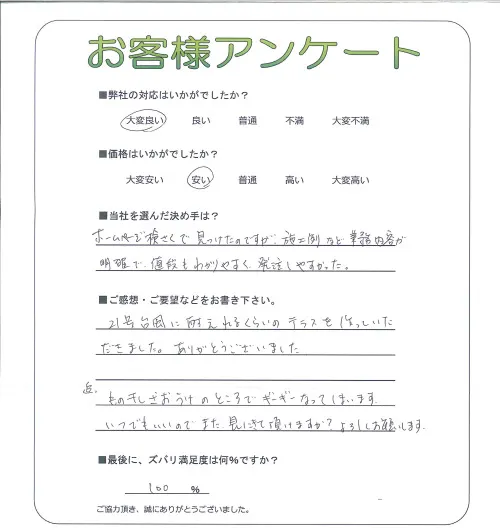 お客様アンケート
■弊社の対応はいかがでしたか？
大変良い 良い 普通 不満 大変不満
■価格はいかがでしたか？
大変安い 安い 普通 高い 大変高い
■当社を選んだ決め手は？
ホームページ検さくで見つけたのですが、施工例など業務内容が
明確で、値段もわかりやすく発注しやすかった。
■ご感想・ご要望などをお書き下さい。
21号台風に耐えれるくらいのテラスを
だきました。ありがとうございました
追.
ものほしざおうけのところでギーギーなってしまいます
いつでもいいのでまた見にきて頂けますか？よろしくお願いします.
■最後に、ズバリ満足度は何％ですか？
100 ％
ご協力頂き、誠にありがとうございました。